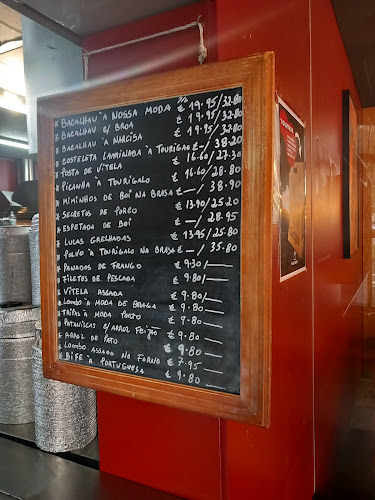 1/2
BACALHAU À NOSSA MODA € 19.95/32.80
BACALHAU C/ BROA € 19.95/32.80
BACALHAU À NARCISA € 19.95/32.80
COSTELETA LAMINADA À TOURIGALO € — / 38.20
POSTA DE VITELA € 16.60/27.30
PICANHA À TOURIGALO € 16.60/28.80
MIMINHOS DE BOI NA BRASA € — / 38.90
SECRETOS DE PORCO € 13.90/25.20
ESPETADA DE BOI € — / 28.95
LULAS GRELHADAS € 13.95/25.80
POLVO À TOURIGALO NA BRASA € — / 35.80
PANADOS DE FRANGO € 9.30/——
FILETES DE PESCADA € 9.80/——
VITELA ASSADA € 9.80/——
LOMBO À MODA DE BRAGA € 9.80/——
TRIPAS À MODA PORTO € 9.80/——
PATANISCAS C/ARROZ FEIJÃO € 9.80/——
ARROZ DE PATO € 9.80/——
LOMBO ASSADO NO FORNO € 7.95/——
BIFE À PORTUGUESA € 9.80/——